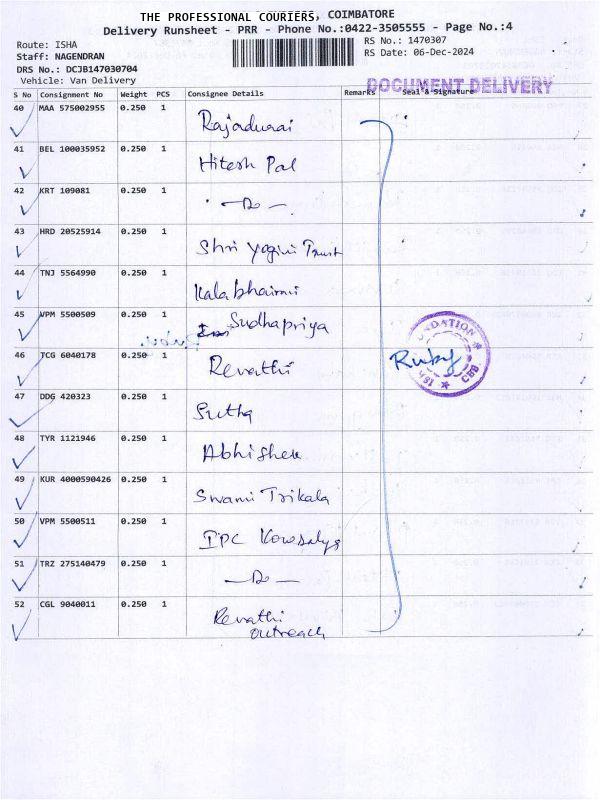 THE PROFESSIONAL COURIERS, COIMBATORE
Delivery Runsheet - PRR - Phone No.:0422-3505555 - Page No.:4
Route: ISHA
RS No.: 1470307
Staff: NAGENDRAN
RS Date: 06-Dec-2024
DRS No.: DCJB147030704
Vehicle: Van Delivery
DOCUMENT DELIVERY
S No Consignment No Weight PCS Consignee Details Remarks Seal & Signature
40 MAA 575002955 0.250 1 Rajadurai
41 BEL 100035952 0.250 1 Hitesh Pal
42 KRT 109081 0.250 1 - Do -
43 HRD 20525914 0.250 1 Shri Yogini Trust
44 TNJ 5564990 0.250 1 Kalabhairavi
45 VPM 5500509 0.250 1 Sudhapriya
46 TCG 6040178 0.250 1 Revathi
Ruby
47 DDG 420323 0.250 1 Sutha
48 TYR 1121946 0.250 1 Abhishek
49 KUR 4000590426 0.250 1 Swami Trikala
50 VPM 5500511 0.250 1 IPC Kowsalya
51 TRZ 275140479 0.250 1 - Do -
52 CGL 9040011 0.250 1 Revathi
outreach